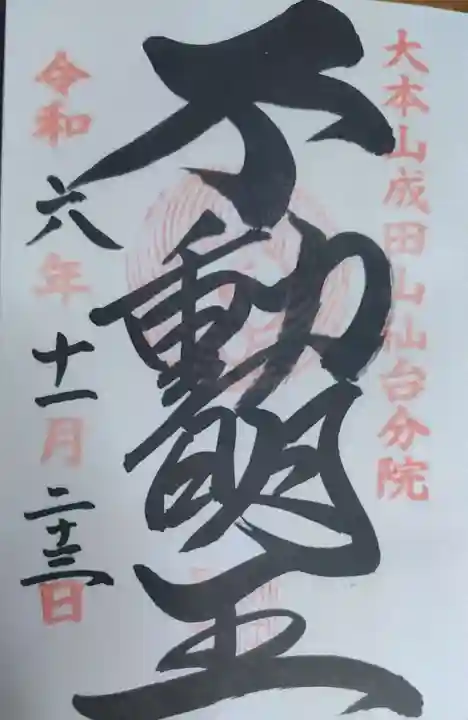 大本山成田山仙台分院
不動明王
令和六年十一月二十三日